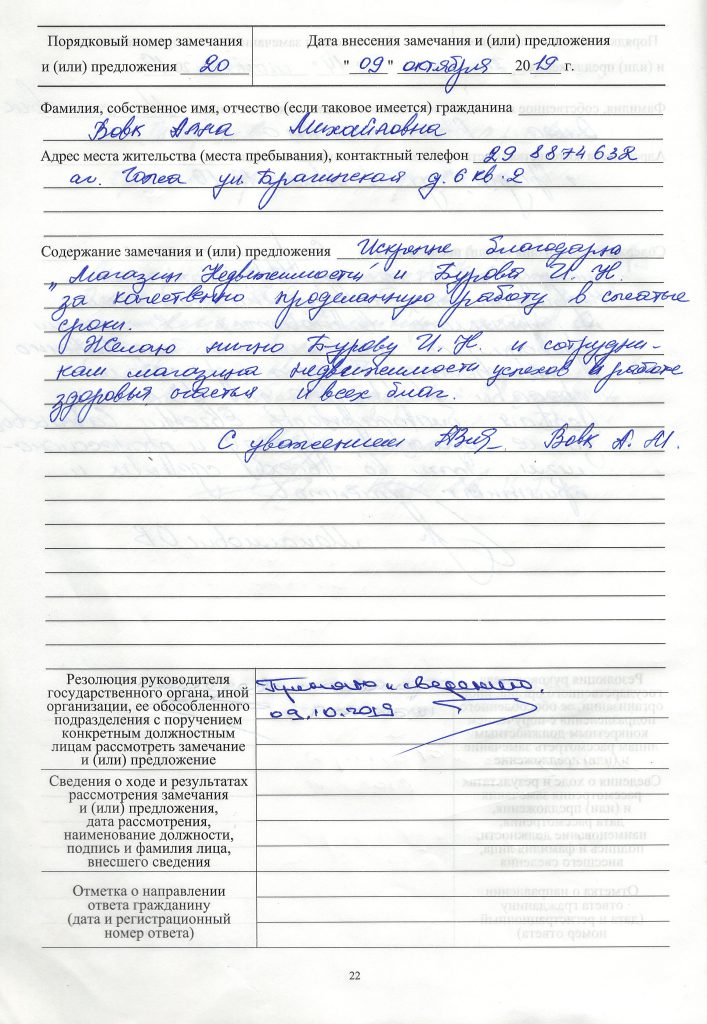 Порядковый номер замечания
и (или) предложения 20
Дата внесения замечания и (или) предложения
"09" октября 2019 г.
Фамилия, собственное имя, отчество (если таковое имеется) гражданина
Вовк Анна Михайловна
Адрес места жительства (места пребывания), контактный телефон 29 8874632
аг. ул. Брагинская д. 6 кв. 2
Содержание замечания и (или) предложения Искренне благодарна
"Магазин Недвижимости" и Бурова И. Н.
за качественно проделанную работу в сжатые
сроки.
Желаю лично Бурову И. Н. и сотрудни-
кам магазина недвижимости успехов в работе
здоровья, счастья и всех благ.
С уважением Вовк А. М.
Резолюция руководителя
государственного органа, иной
организации, ее обособленного
подразделения с поручением
конкретным должностным
лицам рассмотреть замечание
и (или) предложение
Принято к сведению.
09.10.2019
Сведения о ходе и результатах
рассмотрения замечания
и (или) предложения,
дата рассмотрения,
наименование должности,
подпись и фамилия лица,
внесшего сведения
Отметка о направлении
ответа гражданину
(дата и регистрационный
номер ответа)
22